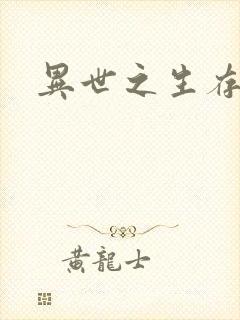 異世之生存
黃龍士